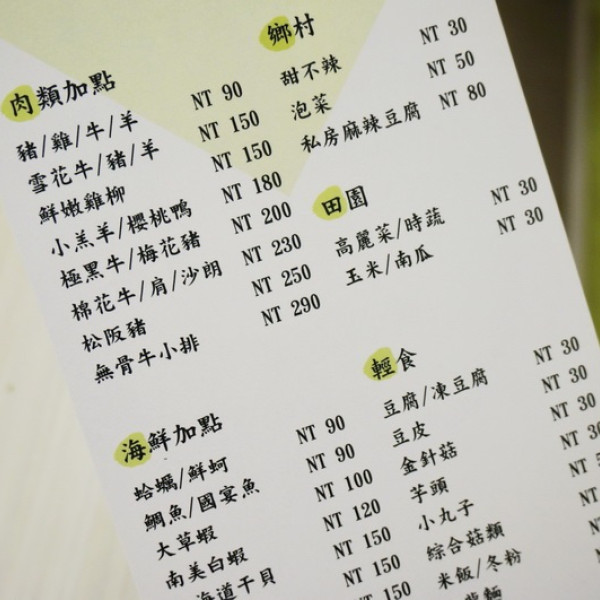 肉類加點
豬/雞/牛/羊 NT 90
雪花牛/豬/羊 NT 150
鮮嫩雞柳 NT 150
小羔羊/櫻桃鴨 NT 180
極黑牛/梅花豬 NT 200
棉花牛/肩/沙朗 NT 230
松阪豬 NT 250
無骨牛小排 NT 290
海鮮加點
蛤蠣/鮮蚵 NT 90
鯛魚/國宴魚 NT 90
大草蝦 NT 100
南美白蝦 NT 120
海道干貝 NT 150
NT 150
150
鄉村
甜不辣 NT 30
泡菜 NT 50
私房麻辣豆腐 NT 80
田園
高麗菜/時蔬 NT 30
玉米/南瓜 NT 30
輕食
豆腐/凍豆腐 NT 30
豆皮 NT 30
金針菇 NT 30
芋頭 NT
小丸子 NT
綜合菇類 NT
米飯/冬粉
麵